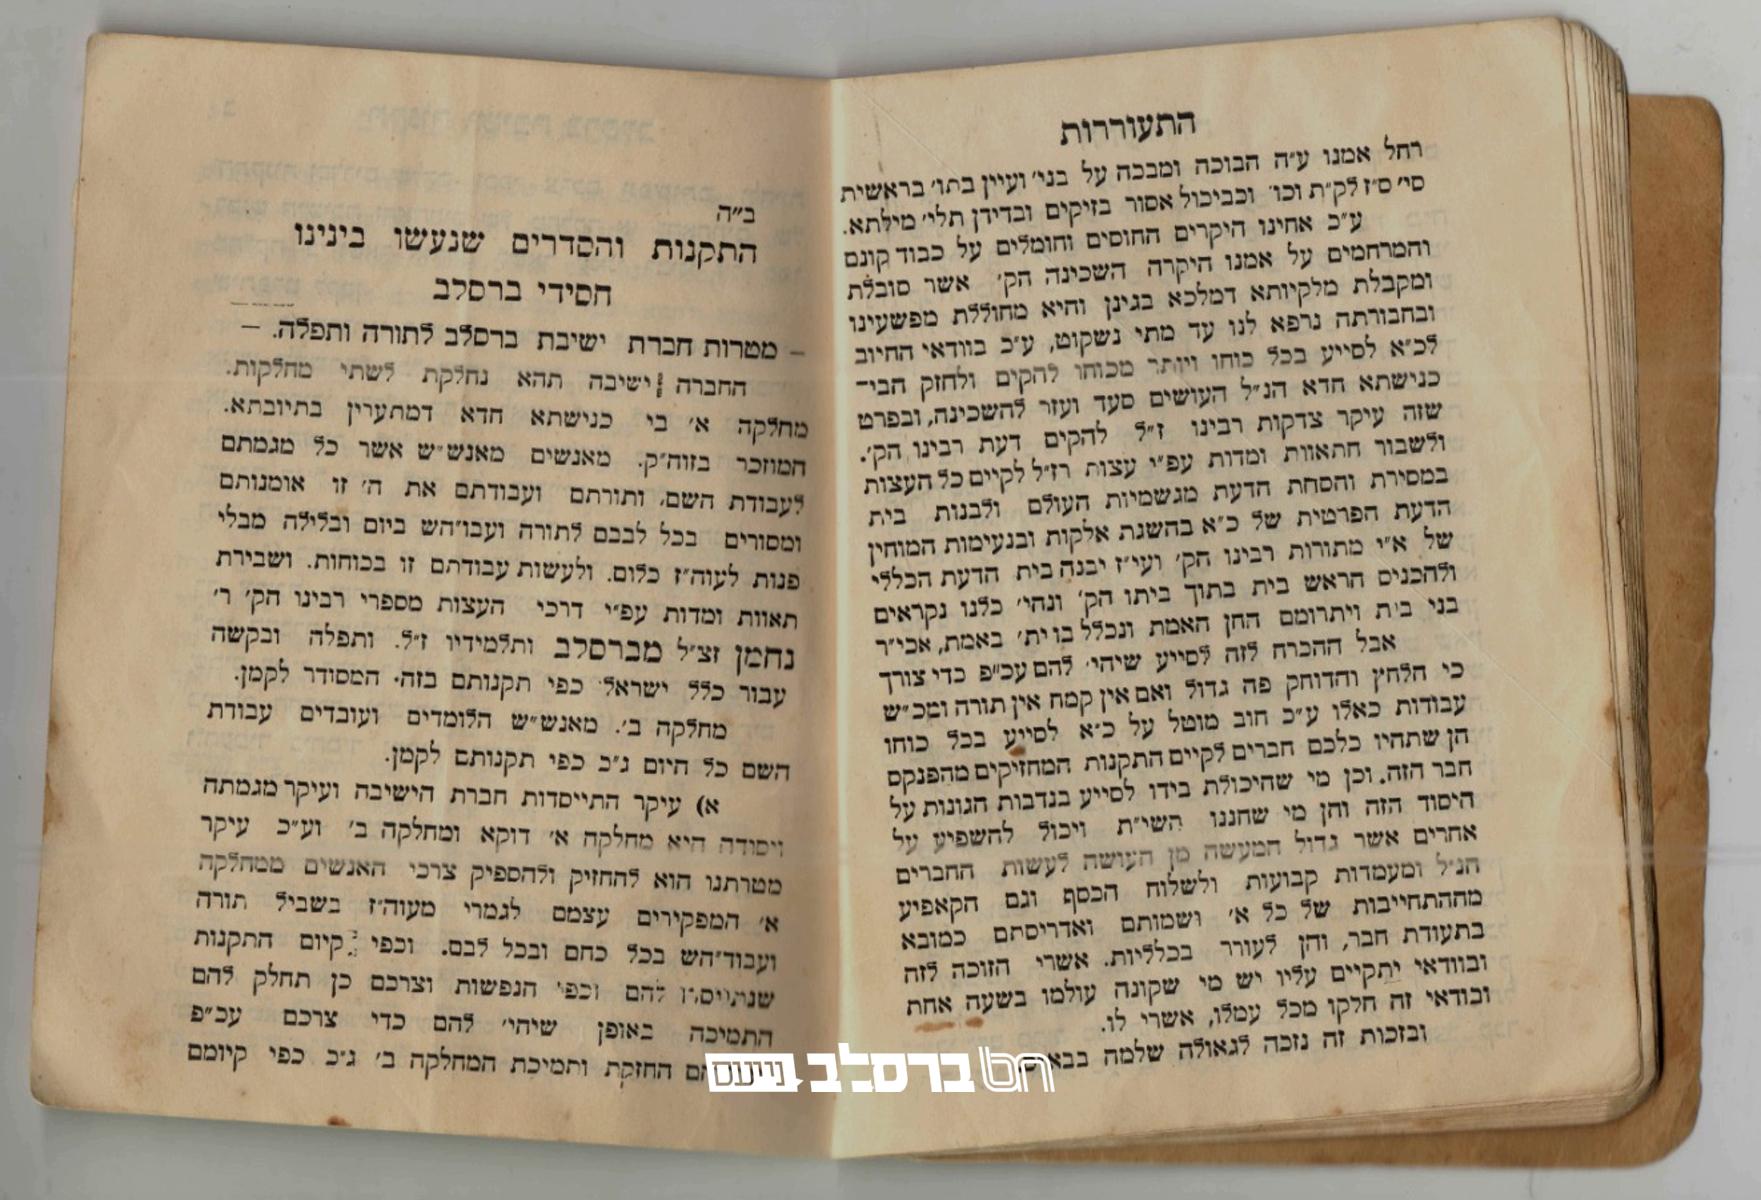 התעוררות
רחל אמנו ע״ה הבוכה ומבכה על בני׳ ועיין בתו׳ בראשית
סי׳ ס״ז לק״ת וכו׳ וכביכול אסור בזיקים ובדידן תלי׳ מילתא.
ע״כ אחינו היקרים החוסים וחומלים על כבוד קונם
והמרחמים על אמנו היקרה השכינה הק׳ אשר סובלת
ומקבלת מלקיותא דמלכא בגינן והיא מחוללת מפשעינו
ובחבורתה נרפא לנו עד מתי נשקוט, ע״כ בוודאי החיוב
לכ״א לסייע בכל כוחו ויותר מכוחו להקים ולחזק הבי־
כנישתא חדא הנ״ל העושים סעד ועזר להשכינה, ובפרט
שזה עיקר צדקות רבינו ז״ל להקים דעת רבינו הק׳.
ולשבור התאוות ומדות עפ״י עצות רז״ל לקיים כל העצות
במסירת והסחת הדעת מגשמיות העולם ולבנות בית
הדעת הפרטית של כ״א בהשגת אלקות ובנעימות המוחין
של א״י מתורות רבינו הק׳ ועי״ז יבנה בית הדעת הכללי
ולהכניס הראש בית בתוך ביתו הק׳ ונהי׳ כלנו נקראים
בני בית ויתרומם החן האמת ונכלל בו ית׳ באמת, אכי״ר
אבל ההכרח לזה לסייע שיהי׳ להם עכ״פ כדי צורך
כי הלחץ והדוחק פה גדול ואם אין קמח אין תורה ומכ״ש
עבודות כאלו ע״כ חוב מוטל על כ״א לסייע בכל כוחו
הן שתהיו כלכם חברים לקיים התקנות המחזיקים מהפנקס
חבר הזה. וכן מי שהיכולת בידו לסייע בנדבות הגונות על
היסוד הזה והן מי שחננו השי״ת ויכול להשפיע על
אחרים אשר גדול המעשה מן העושה לעשות החברים
הנ״ל ומעמדות קבועות ולשלוח הכסף וגם הקאפיע
מההתחייבות של כל א׳ ושמותם ואדריסתם כמובא
בתעודת חבר, והן לעורר בכלליות. אשרי הזוכה לזה
ובוודאי יתקיים עליו יש מי שקונה עולמו בשעה אחת
ובודאי זה חלקו מכל עמלו, אשרי לו.
ובזכות זה נזכה לגאולה שלמה בבא
ב״ה
התקנות והסדרים שנעשו בינינו
חסידי ברסלב
– מטרות חברת ישיבת ברסלב לתורה ותפלה. –
החברה ישיבה תהא נחלקת לשתי מחלקות.
מחלקה א׳ בי כנישתא חדא דמתערין בתיובתא.
המוזכר בזוה״ק. מאנשים מאנש״ש אשר כל מגמתם
לעבודת השם, ותורתם ועבודתם את ה׳ זו אומנותם
ומסורים בכל לבבם לתורה ועבו״הש ביום ובלילה מבלי
פנות לעוה״ז כלום. ולעשות עבודתם זו בכוחות. ושבירת
תאוות ומדות עפ״י דרכי העצות מספרי רבינו הק׳ ר׳
נחמן זצ״ל מברסלב ותלמידיו ז״ל. ותפלה ובקשה
עבור כלל ישראל כפי תקנותם בזה. המסודר לקמן.
מחלקה ב׳. מאנש״ש הלומדים ועובדים עבודת
השם כל היום ג״כ כפי תקנותם לקמן.
א) עיקר התייסדות חברת הישיבה ועיקר מגמתה
ויסודה היא מחלקה א׳ דוקא ומחלקה ב׳ וע״כ עיקר
מטרתנו הוא להחזיק ולהספיק צרכי האנשים ממחלקה
א׳ המפקירים עצמם לגמרי מעוה״ז בשביל תורה
ועבוד״הש בכל כחם ובכל לבם. וכפי קיום התקנות
שנתייסדו להם וכפי הנפשות וצרכם כן תחלק להם
התמיכה באופן שיהי׳ להם כדי צרכם עכ״פ
החזקת ותמיכת המחלקה ב׳ ג״כ כפי קיומם
ברסלב נייעס